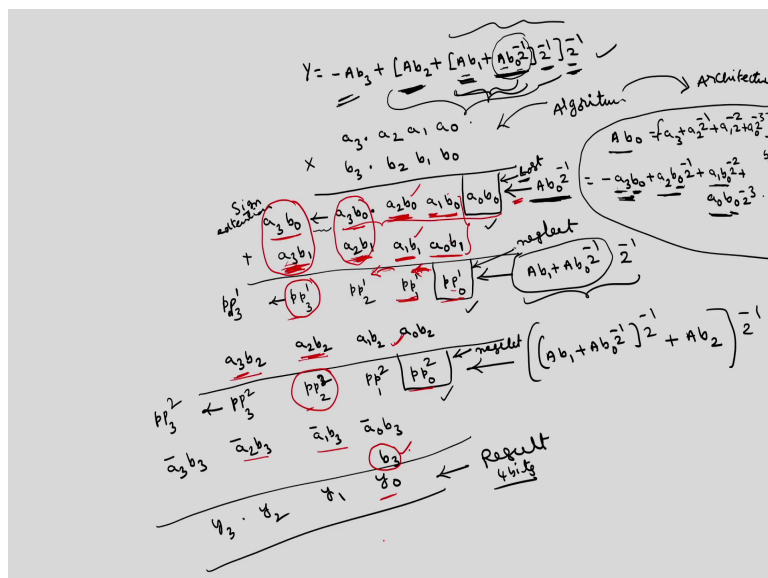 Y = -Ab₃ + [Ab₂ + [Ab₁ + Ab₀2⁻¹]2⁻¹]2⁻¹
Algorithm → Architectu
a₃ . a₂ a₁ a₀
× b₃ . b₂ b₁ b₀
Ab₀ = {a₃ + a₂2⁻¹ + a₁2⁻² + a₀2⁻³
= -a₃b₀ + a₂b₀2⁻¹ + a₁b₀2⁻² +
a₀b₀2⁻³.
Sign extention
lost
a₃b₀ ← a₃b₀ . a₂b₀ a₁b₀ a₀b₀ ← Ab₀2⁻¹
+ a₃b₁ a₂b₁ a₁b₁ a₀b₁
neglect
pp₃¹ ← pp₃¹ pp₂¹ pp₁¹ pp₀¹ ← (Ab₁ + Ab₀2⁻¹)2⁻¹
a₃b₂ a₂b₂ a₁b₂ a₀b₂
neglet
pp₃² ← pp₃² pp₂² pp₁² pp₀² ← ((Ab₁ + Ab₀2⁻¹)2⁻¹ + Ab₂)2⁻¹
a̅₃b₃ a̅₂b₃ a̅₁b₃ a̅₀b₃
b₃
y₃ . y₂ y₁ y₀ ← Result
4bits